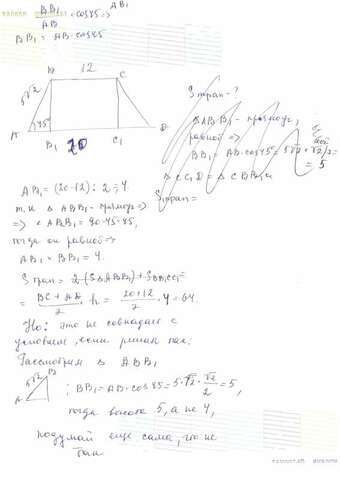 BB₁/AB = cos45 => AB₁
BB₁ = AB·cos45
12
B
C
5√2
45°
A
B₁
20
C₁
D
Sтрап - ?
ΔABB₁ - прямоуг,
равноб =>
BB₁ = AB·cos45° = 5√2 · √2/2 =
= 5
ΔCC₁D = ΔBB₁A
Sтрап =
AB₁ = (20-12):2 = 4.
т.к Δ ABB₁ - прямоуг =>
=> < ABB₁ = 90-45=45,
тогда он равноб =>
AB₁ = BB₁ = 4.
S трап = 2·(SΔABB₁) + SBB₁CC₁ =
= BC + AD / 2 · h = 20+12 / 2 · 4 = 64.
Но: это не совпадает с
условием, если решать так:
Рассмотрим Δ ABB₁
5√2
B
A
; BB₁ = AB·cos45 = 5·√2 · √2/2 = 5,
тогда высота 5, а не 4,
подумай еще сама, что не
так